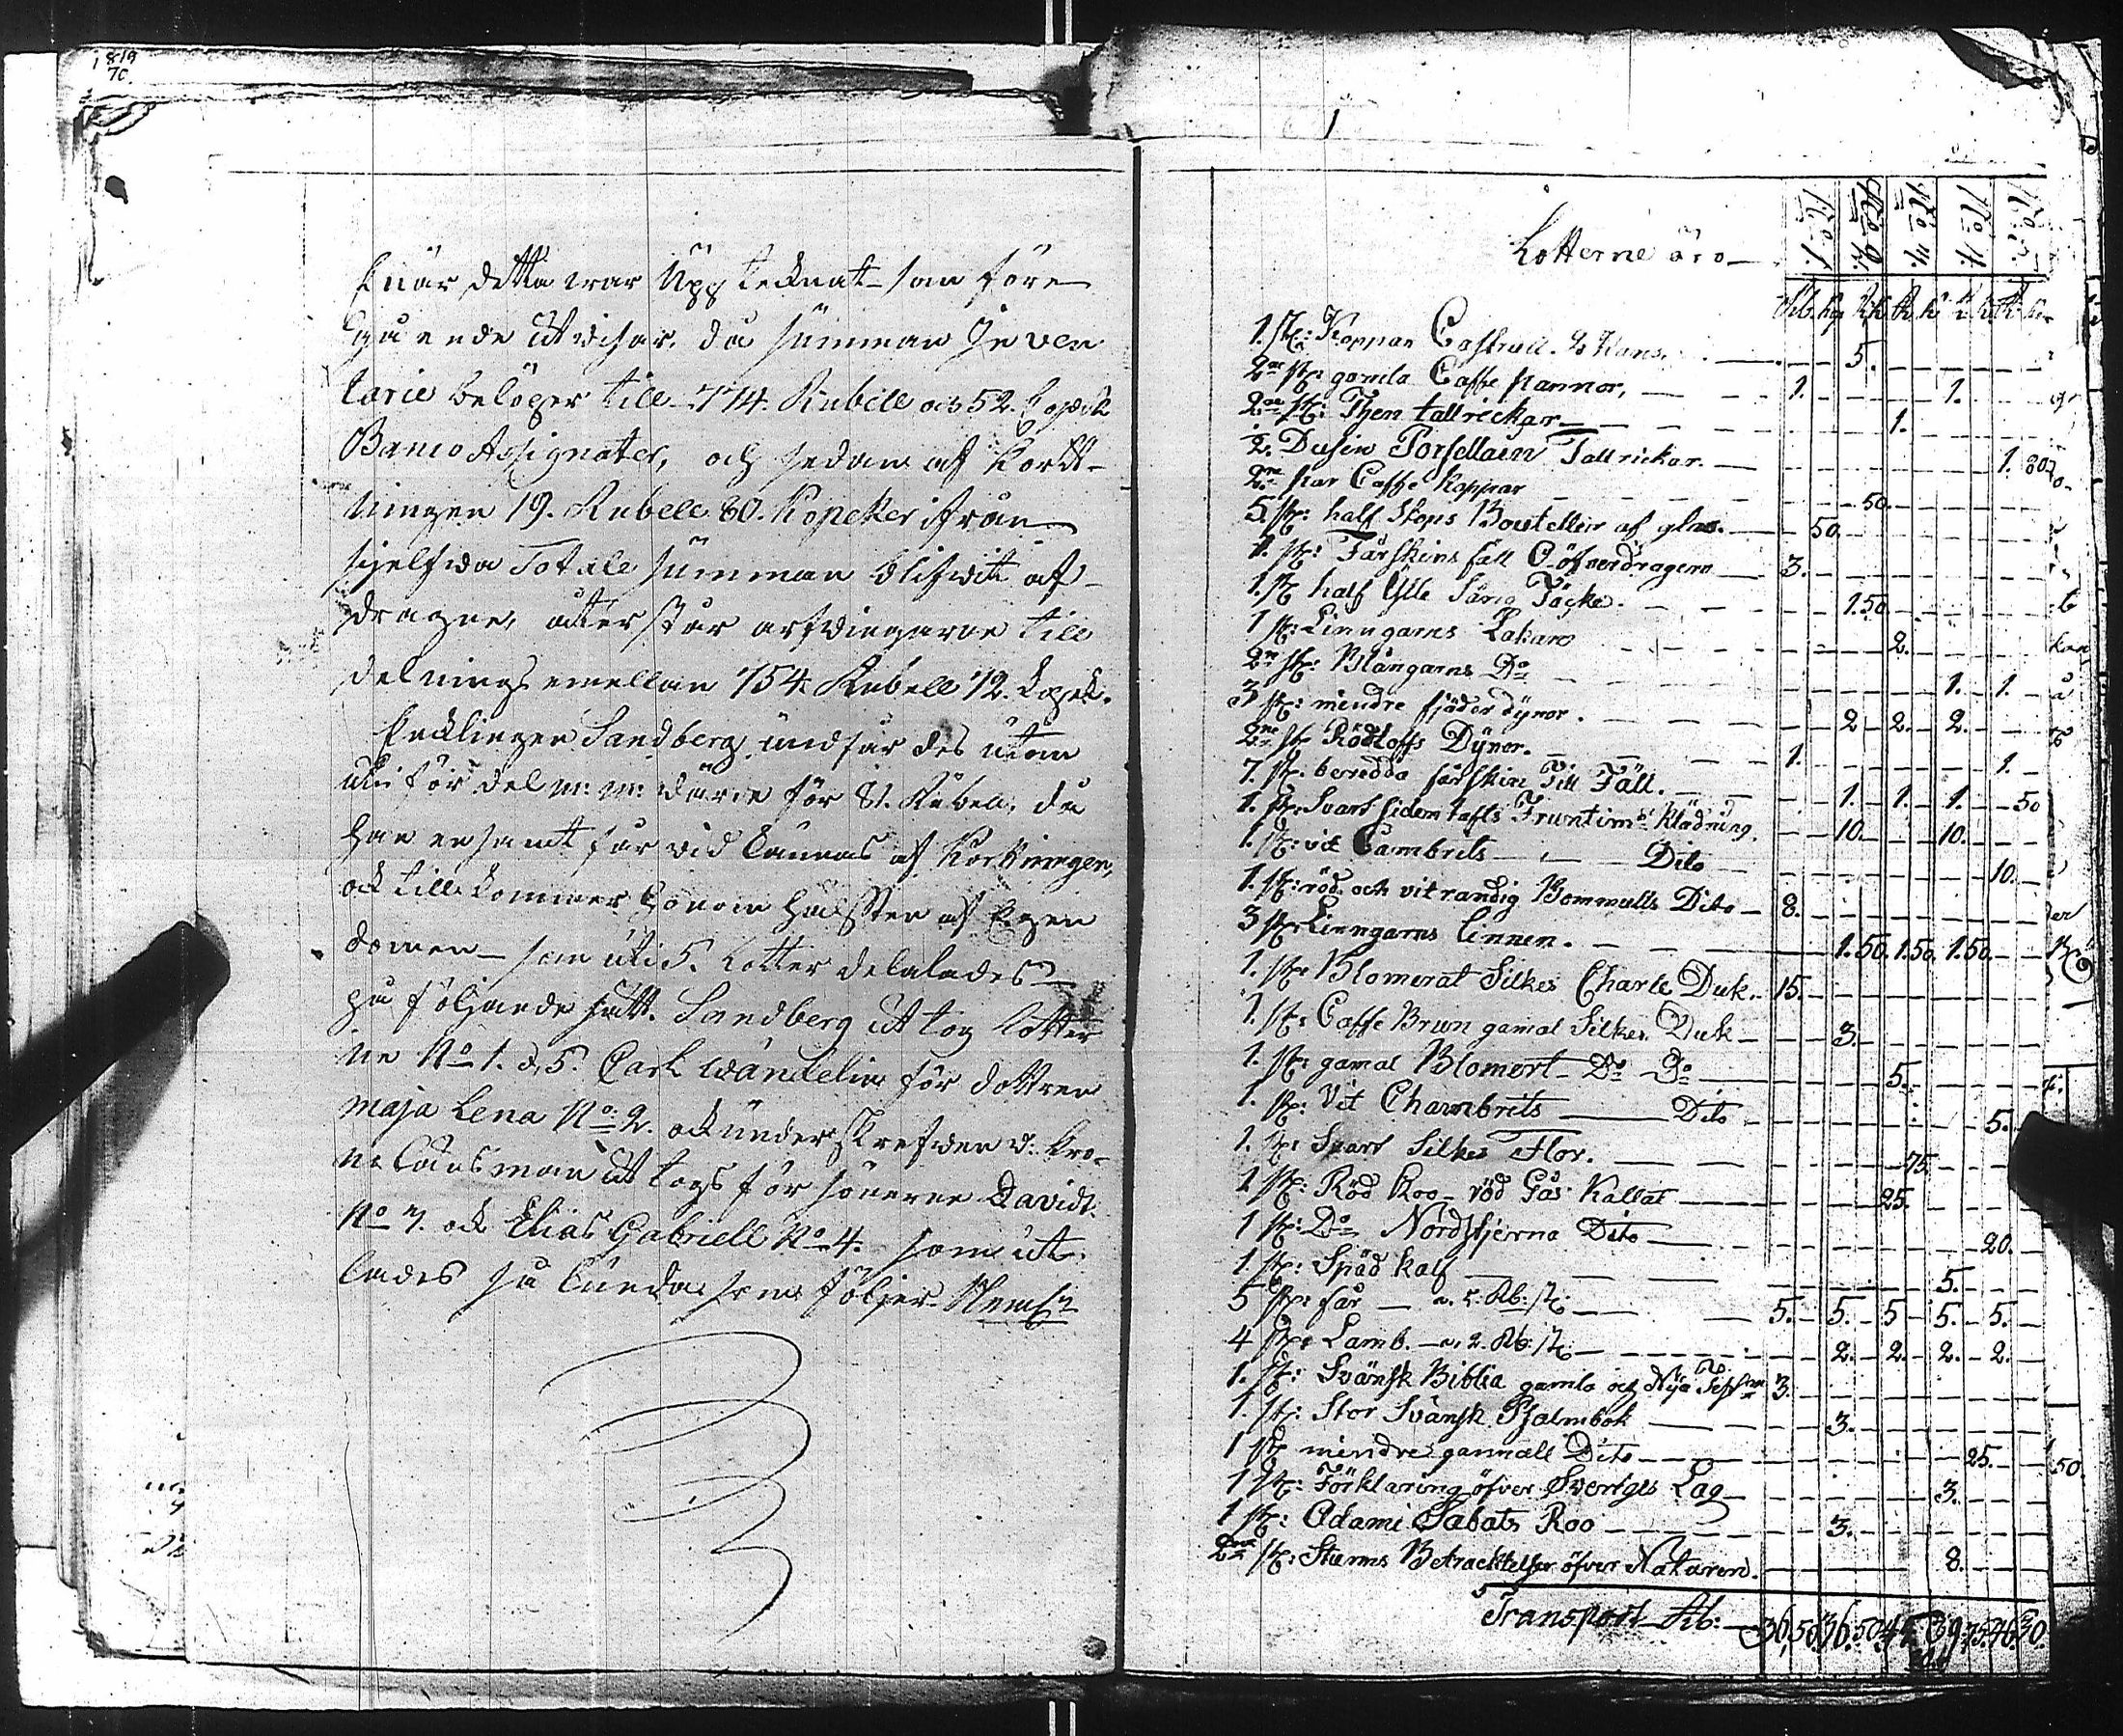 1819
70.
Enär detta war Upp tecknat som före
gå ende utvisar, då summan Inven
tarie belöper till 774. Rubell och 52. Copek
Banco Assignater, och sedan af kortt-
ningen 19. Rubell 80. Kopeker ifrån
sjelfwa Totale summan blifwit af-
dragne, återstår arfvingarne till
delnings emellan 754 Rubell 72. Kopek.
Sandberg undfår des utom
för del m: m: wärde för 81. Rubel, då
han ensamt får vid kännas af Kortningen,
och till kommer honom hälften af Egen
domen som uti 5. Lotter delalades
på följande sätt. Sandberg ut tog Lotter
ne No 1. & 5. Carl Wändelin för dottren
Maja Lena No 2. och under skrefwen v: Kro-
ne Länsman ut togs för sönerne Davidt
No 3. och Elias Gabriell No 4. som ut
lades så lunda som följer Nemln
1
Lotterne äro
No 1. No 2. No 3. No 4. No 5.
Rub. Kop R. K R. K R. K R. K
1. st: Koppar Castrull. & Kans. 5.
2ne st: gamla Caffe pannor, 1. 1.
2ne st: Then tallrickar 1.
½. Dusin Porsellain Tallrickar. 1. 80
2ne par Caffe Koppar 50.
5. st: half Stops Boutellier af glas. 50.
1. st: Fårskins fäll O-öfverdragen 3.
1. st half Ylle Säng Täcke. 1.50
1 st: Linngarns Lakan 2.
2ne st: Blångarns Do 1. 1.
3 st: mindre fjäder dynor. 2 2. 2.
2ne st Rödloffs Dynor. 1. 1.
7. st. beredda fårskin Till Fäll. 1. 1. 1. 50
1. st: Svart sidem tafts Fruntims Klädning. 10. 10.
1. st: vit Cambrits Dito 10.
1. st: röd och vit randig Bommulls Dito 8.
3 st: Linngarns linnen. 1.50. 1.50. 1.50.
1. st: Blomerat Silkes Charle Duk. 15.
1. st: Caffe Brun gamal Silkes Duk 3.
1. st: gamal Blomert Do Do 5.
1. st: Vit Chambrits Dito 5.
1. st: Svart Silkes Flor. 75.
1 st: Röd Koo röd Gås Kallat 25.
1 st: Do Nordstjerna Dito 20.
1 st: Späd kalf 5.
5 st: får a. 5: Rb: st: 5. 5. 5 5. 5.
4 st: Lamb. a, 2. Rb: st: 2. 2. 2. 2.
1. st: Svänsk Biblia gamla och Nya Testm 3.
1. st: Stor Svänsk Psalmbok 3.
1 st: mindre gammall Dito 25.
1 st: Förklaring öfver Sveriges Lag 3.
1 st: Adami Sabats Roo 3.
2ne st: Sturms Betracktelser öfver Naturen. 8.
Transport Rb: 36,50 36.50 45. 39.75. 46 30.